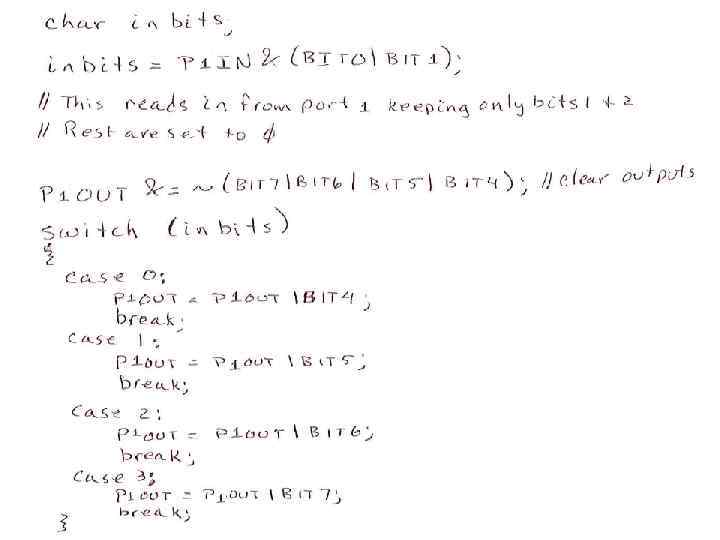 char inbits;
inbits = P1IN & (BIT0|BIT1);
// This reads in from port 1 keeping only bits 1 + 2
// Rest are set to 0
P1OUT &= ~(BIT7|BIT6|BIT5|BIT4); //clear outputs
switch (inbits)
{
case 0:
P1OUT = P1OUT |BIT4;
break;
case 1:
P1OUT = P1OUT |BIT5;
break;
case 2:
P1OUT = P1OUT |BIT6;
break;
case 3:
P1OUT = P1OUT |BIT7;
break;
}